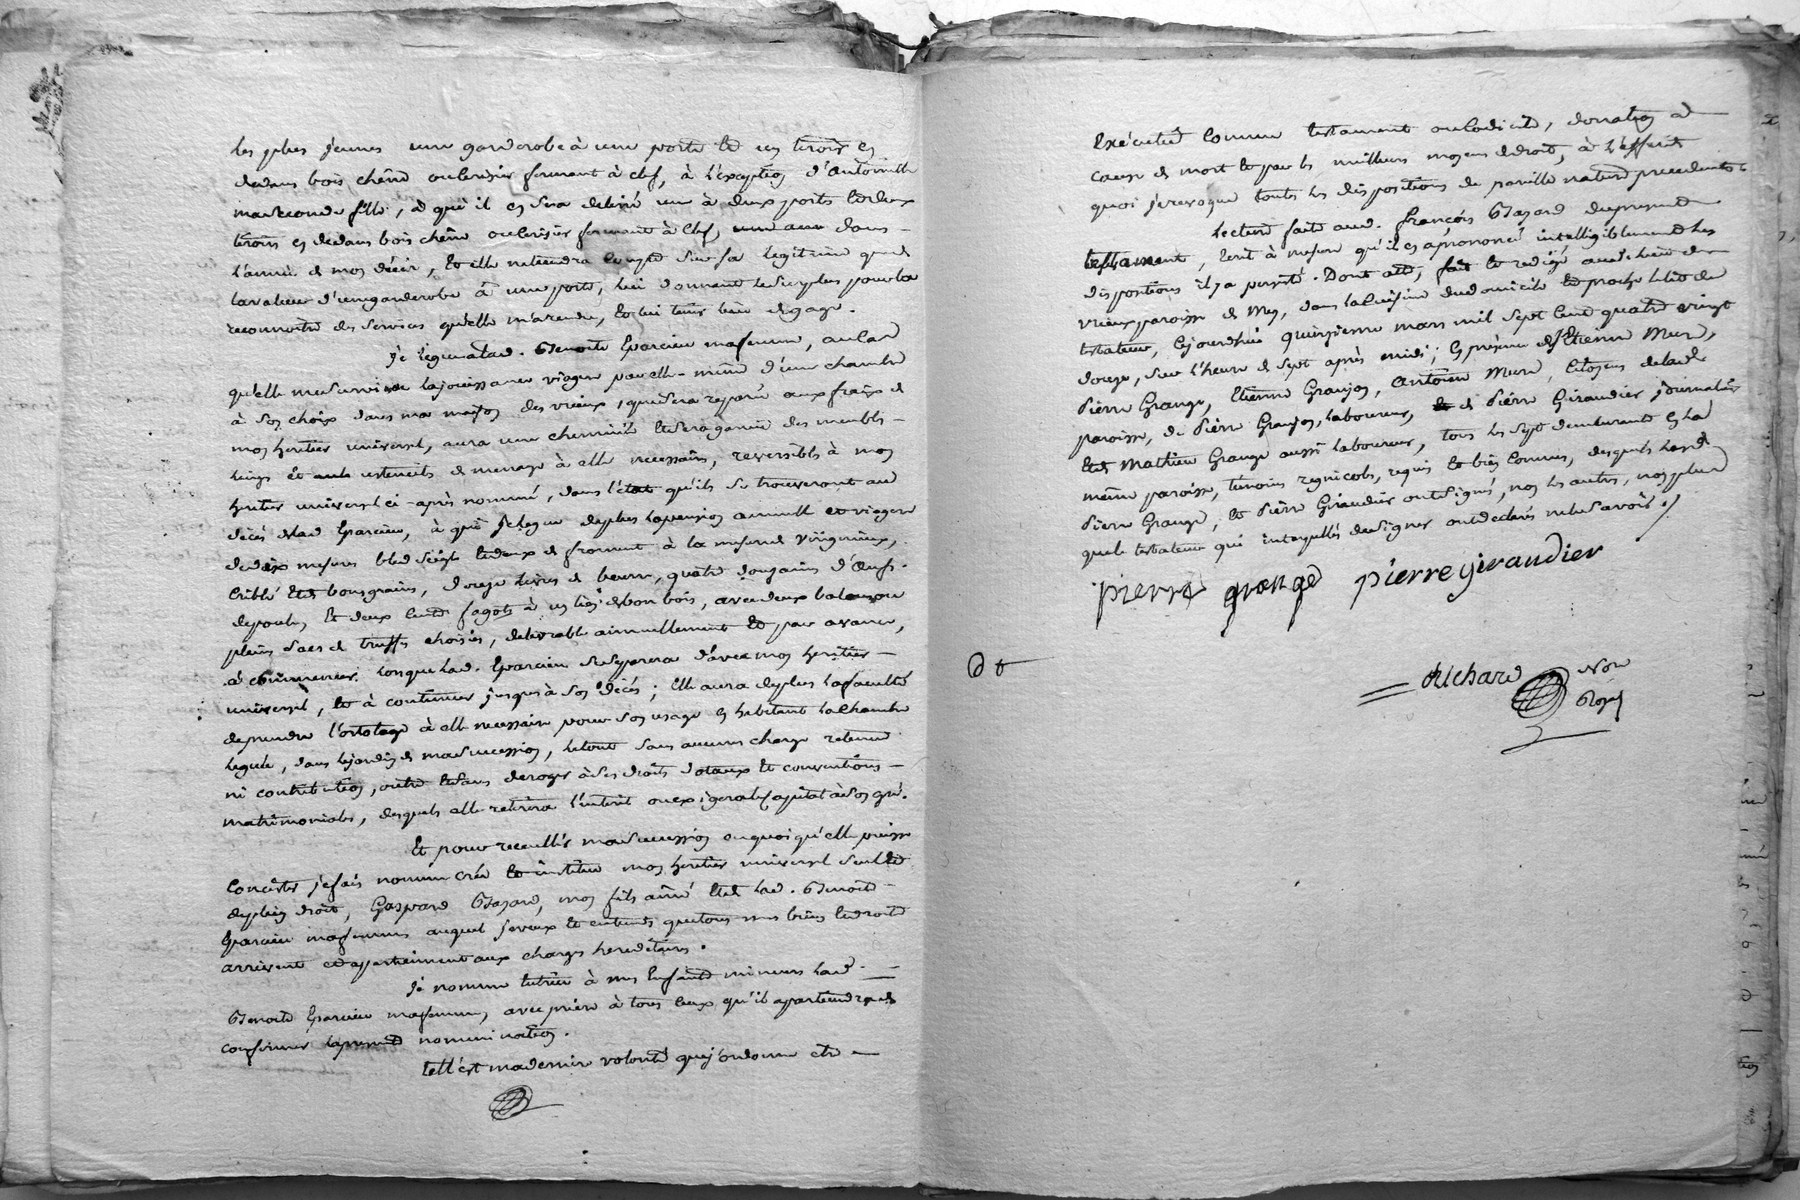 les plus jeunes une garderobe à une porte et un tiroir en
dedans bois chêne ou cerisier fermant à clef, à l'exception d'antoinette
ma seconde fille, à qui il en sera delivré une à deux portes et deux
tiroirs en dedans bois chêne ou cerisier fermant à clef, dans
l'année de mon décès, et elle ne tiendra compte sur sa legitime que de
la valleur d'une garderobe à une porte, lui donnant le surplus pour la
reconnoitre des services qu'elle m'a rendu, et lui tenir lieu de gage.
Je legue à lad. Benoite Eparcieu ma femme, au cas
qu'elle me survive la jouissance viagere pour elle-même d'une chambre
à son choix dans ma maison des vrieux, qui sera reparée aux fraix de
mon heritier universel, aura une cheminée et sera garnie des meubles
linges et autres ustencils de menage à elle necessaires, reversibles à mon
heritier universel ci-après nommé, dans l'état qu'ils se trouveront au
décès de lad Eparcieu, à qui je legue de plus la pension annuelle et viagere
de dix mesures bled seigle et deux de froment à la mesure de Virignieux,
criblé et de bons grains, douze livres de beurre, quatre douzaines d'œufs
de poule, et deux cents fagots à un lien de bon bois, avec deux
pleins sacs de truffes choisies, delivrable annuellement et par avance,
à commencer lorsque lad. Eparcieu se separera d'avec mon heritier
universel, et à continuer jusques à son décès; Elle aura de plus la faculté
de prendre l'ortolage à elle necessaire pour son usage en habitant la chambre
leguée, dans le jardin de ma succession, le tout sans aucune charge retenue
ni contribution, outre et sans deroger à ses droits dotaux et conventions
matrimoniales, desquels elle retirera l'interêt ou exigera le capital à son gré.
Et pour recueillir ma succession en quoi qu'elle puisse
consister je fais nomme crée et institue mon heritier universel seul et
de plein droit, Gaspard Bazard, mon fils ainé et de lad. Benoite
Eparcieu ma femme auquel je veux et entends que tous mes biens et droits
arrivent et appartiennent aux charges hereditaires.
Je nomme tutrice à mes Enfants mineurs lad.
Benoite Eparcieu ma femme, avec priere à tous ceux qu'il apartiendra de
confirmer la presente nomination.
Tell'est ma derniere volonté que j'ordonne etre
Exécutée comme testament ou codicile, donation à
cause de mort et par les meilleurs moyens de droit, à l'effet de
quoi je revoque toutes les dispositions de pareille nature precedentes
Lecture faite aud. françois Bazard du present
testament, ecrit à mesure qu'il en a prononcé intelligiblement les
dispositions il y a persisté. Dont acte, fait et redigé aud. lieu des
vrieux paroisse de Mey, dans la cuisine du domicile et proche le lit du
testateur, cejourdhui quinzieme mars mil sept cent quatre vingt
douze, sur l'heure de sept après midi; En présence d'Etienne Mure,
Pierre Grange, Etienne Granjon, antoine Mure, Citoyens de lade
paroisse, de Pierre Granjon, laboureur, de Pierre Giraudier journalier
et de Mathieu Grange aussi laboureur, tous les sept demeurants en lad
même paroisse, temoins regnicols, requis et bien connus, desquels lesd
Pierre Grange, et Pierre Giraudier ont signé, non les autres, non plus
que le testateur qui interpellés de signer ont declaré ne le savoir./
pierre grange pierre giraudier
Richard Nore
Royal